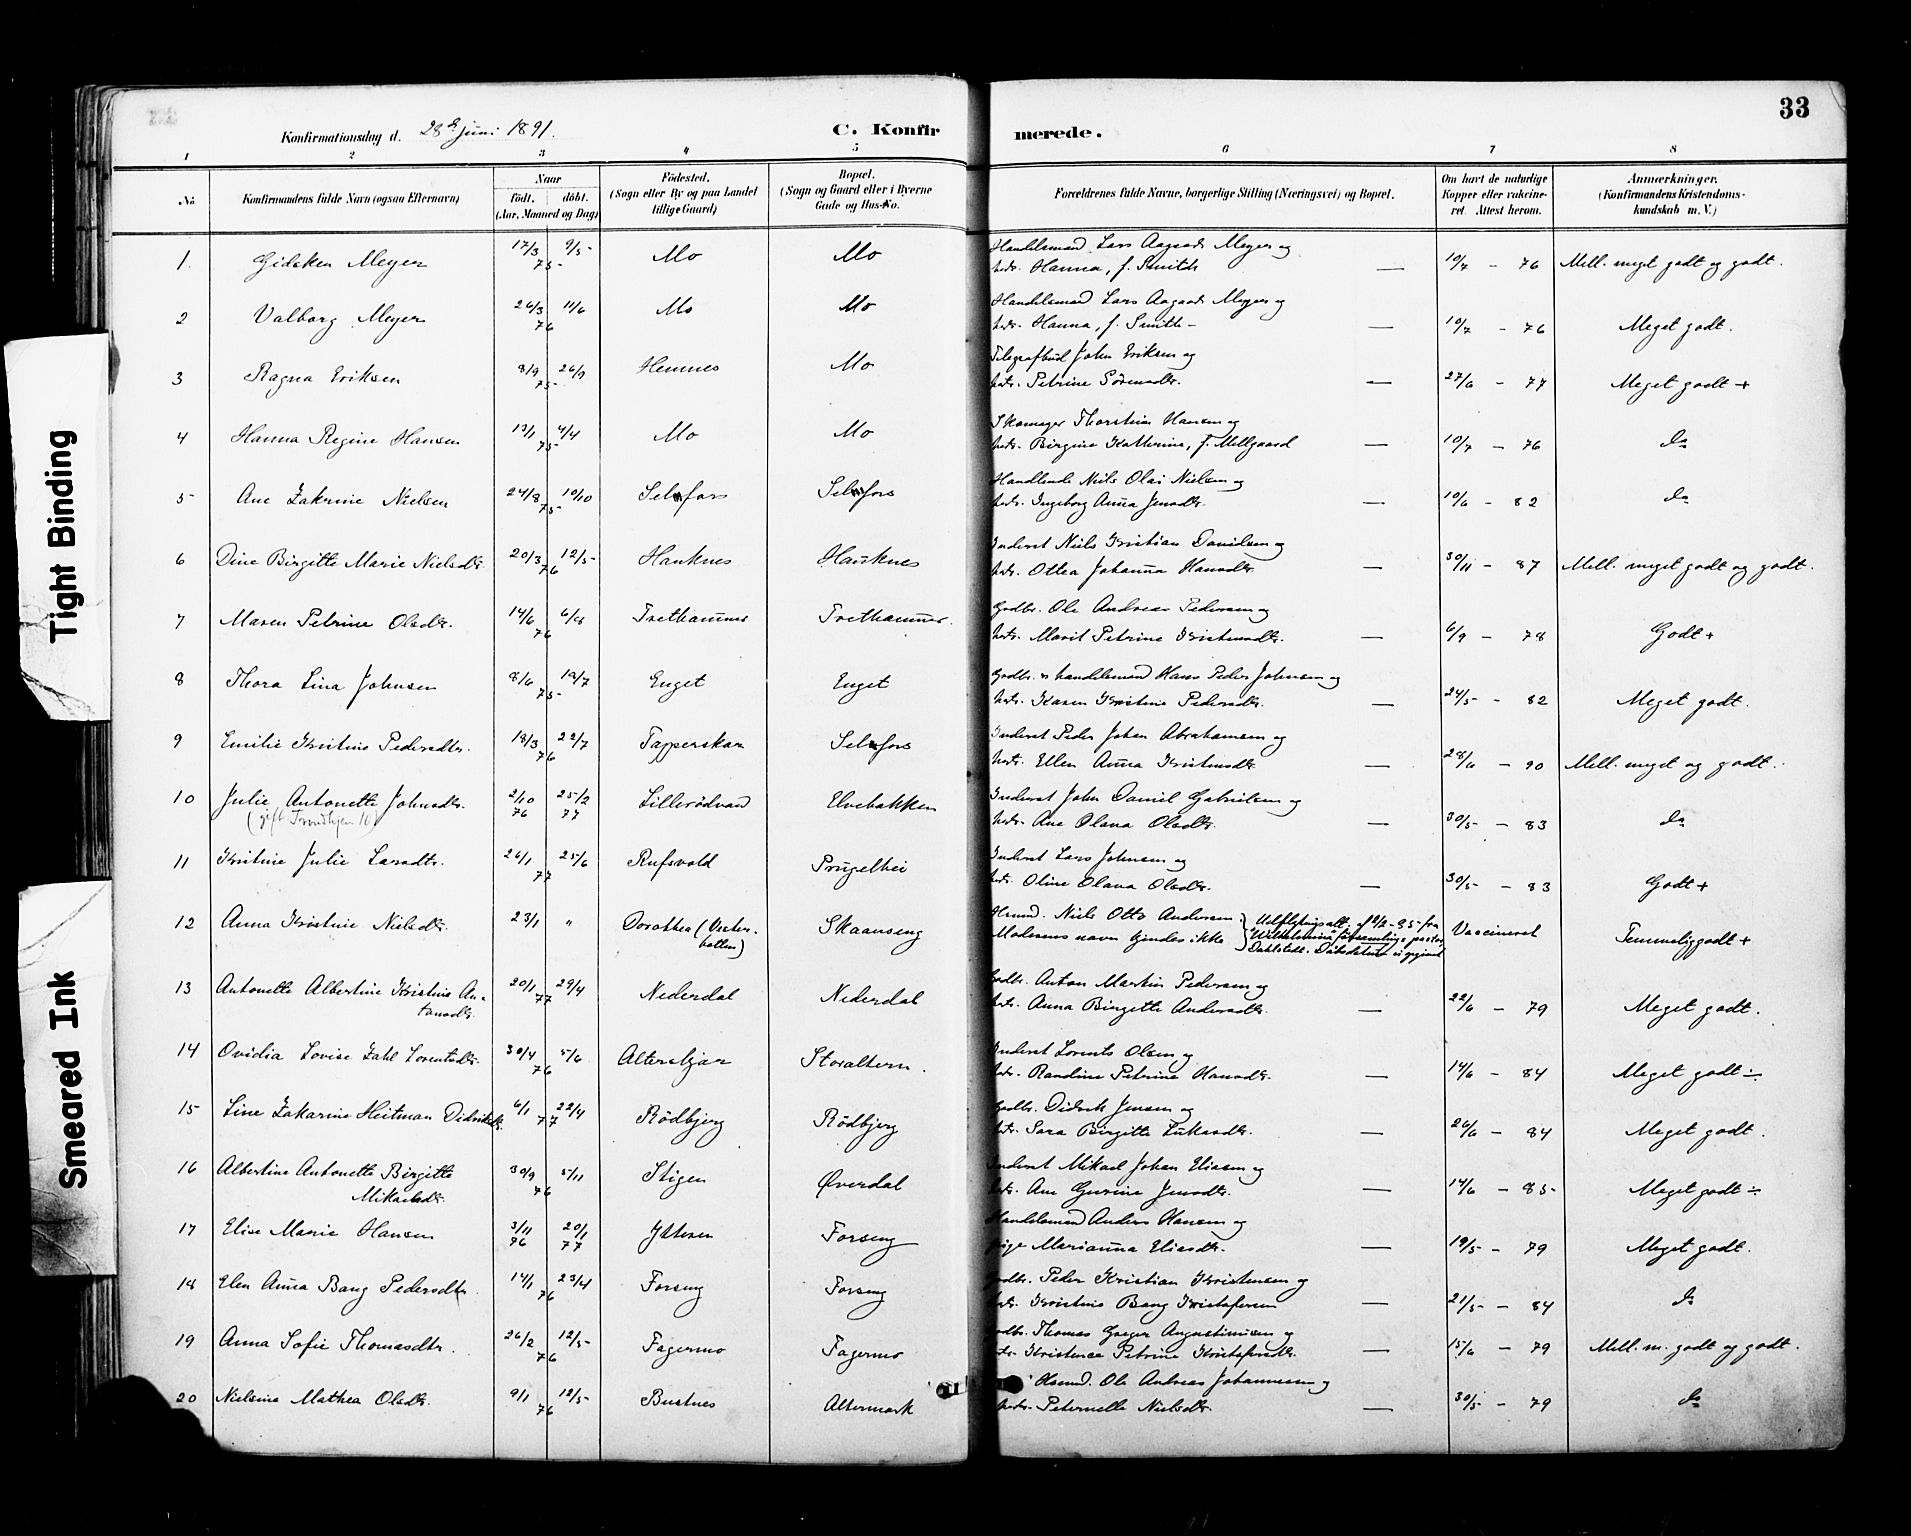 33
Konfirmationsdag d. 28de Juni 1891. C. Konfirmerede.
1 2 3 4 5 6 7 8
No. Konfirmandens fulde Navn (ogsaa Efternavn) Naar født. døbt. (Aar, Maaned og Dag) Fødested. (Sogn eller By og paa Landet tillige Gaard) Bopæl. (Sogn og Gaard eller i Byerne Gade og Hus-No. Forældrenes fulde Navne, borgerlige Stilling (Næringsvei) og Bopæl. Om havt de naturlige Kopper eller vaccineret. Attest herom. Anmerkninger. (Konfirmandens Kristendomskundskab m. V.)
1. Gidsken Meyer 17/3 9/5 75 Mo Mo Handelsmand Lars Aagaard Meyer og
hstr. Hanna, f. Smith — 10/7 - 76 Mell. meget godt og godt.
2 Valborg Meyer 26/3 11/6 76 Mo Mo Handelsmand Lars Aagaard Meyer og
hstr. Hanna, f. Smith — 10/7 - 76 Meget godt.
3 Ragna Eriksen 8/9 26/9 75 Hemnes Mo Telegrafbud John Eriksen og
hstr. Petrine Sørensdtr. — 27/6 - 77 Meget godt +
4 Hanna Regine Hansen 4/4 75 Mo Mo Skomager Thorstein Hansen og
hstr. Birgine Katherine, f. Mellgaard — 10/7 - 76 do
5 Ane Zakrine Nielsen 24/8 10/10 75 Selsfors Selsfors Handlende Niels Olai Nielsen og
hstr. Ingeborg Anna Jensdtr. — 10/6 - 82 do
6 Dine Birgitte Marie Nielsdtr. 20/3 12/5 76 Hauknes Hauknes Inderst Niels Kristian Danielsen og
hstr. Ottea Johanna Hansdtr. — 30/11 - 87 Mell. meget godt og godt.
7 Maren Petrine Olsdtr. 14/6 6/8 76 Trethammer Trethammer. Grdbr. Ole Andreas Pedersen og
hstr. Marit Petrine Kristensdtr. — 6/9 - 78 Godt +
8 Thora Lina Johnsen 8/6 18/7 75 Enget Enget Grdbr. & handelsmand Hans Peder Johnsen og
hstr. Karen Kristine Pedersdtr. — 24/5 - 82 Meget godt.
9 Emilie Kristine Pedersdtr. 18/3 22/7 76 Tapperskar Selsfors Inderst Peder Johan Abrahamsen og
hstr. Ellen Anna Kristensdtr. — 28/6 - 90 Mell. meget og godt.
10 Julie Antonette Johnsdtr. 2/10 76 25/2 77 Lillerødvand Elvebakken Inderst John Daniel Gabrielsen og
(gift Trondhjem 10) hstr. Ane Olana Olsdtr. — 30/5 - 83 do
11 Kristine Julie Larsdtr. 26/1 25/6 77 Rufsvold Prügelhei Inderst Lars Johnsen og
hstr. Oline Olana Olsdtr. — 30/5 - 83 Godt +
12 Anna Kristine Nielsdtr. 23/1 " Dorothea (Vesterbotten) Skaanseng Hsmd. Niels Otto Andersen
Moderens navn kjendes ikke Udflytningsatt. af 2/2 - 95 fra Wilhelmina församlings pastor Dahlstedt. Dåbsdatum ei opgivet Vaccineret Temmelig godt +
13 Antonette Albertine Kristine Antonsdtr. 20/1 29/4 77 Nederdal Nederdal Grdbr. Anton Martin Pedersen og
hstr. Anna Birgitte Andersdtr. — 22/6 - 79 Meget godt.
14 Ovidia Lovise Zahl Lorentsdtr. 30/4 5/6 76 Alterskjær Storalteren. Inderst Lorents Olsen og
hstr. Randine Petrine Hansdtr. — 14/6 - 84 Meget godt ÷
15 Line Zakarine Heitman Didriksdtr. 6/1 22/4 77 Rødbjerg Rødbjerg Grdbr. Didrik Jensen og
hstr. Sara Birgitte Lukasdtr. — 26/6 - 84 Meget godt.
16 Albertine Antonette Birgitte Mikaelsdtr. 30/9 5/11 76 Stigen Øverdal Inderst Mikael Johan Eliesen og
hstr. Ane Gurine Jensdtr. — 14/6 - 85 Meget godt ÷
17 Elise Marie Hansen 3/11 76 20/1 77 Ytteren Forseng Handelsmand Anders Hansen og
pige Marianna Eliasdtr. — 19/5 - 79 Meget godt.
18 Elen Anna Bang Pedersdtr. 14/1 23/4 76 Forseng Forseng Grdbr. Peder Kristian Kristensen og
hstr. Kristine Bang Kristofersen — 21/5 - 84 do
19 Anna Sofie Thomasdtr. 26/2 12/5 76 Fagermo Fagermo Grdbr. Thomas Greger Augustinusen og
hstr. Kristence Petrine Kristofersdtr. — 15/6 - 79 Mell. m. godt og godt.
20 Nielsine Mathea Olsdtr. 9/1 12/5 76 Bustnes Altermark Hsmd. Ole Andreas Johannesen og
hstr. Peternelle Nielsdtr. — 30/5 - 79 do
Tight Binding
Smeared Ink